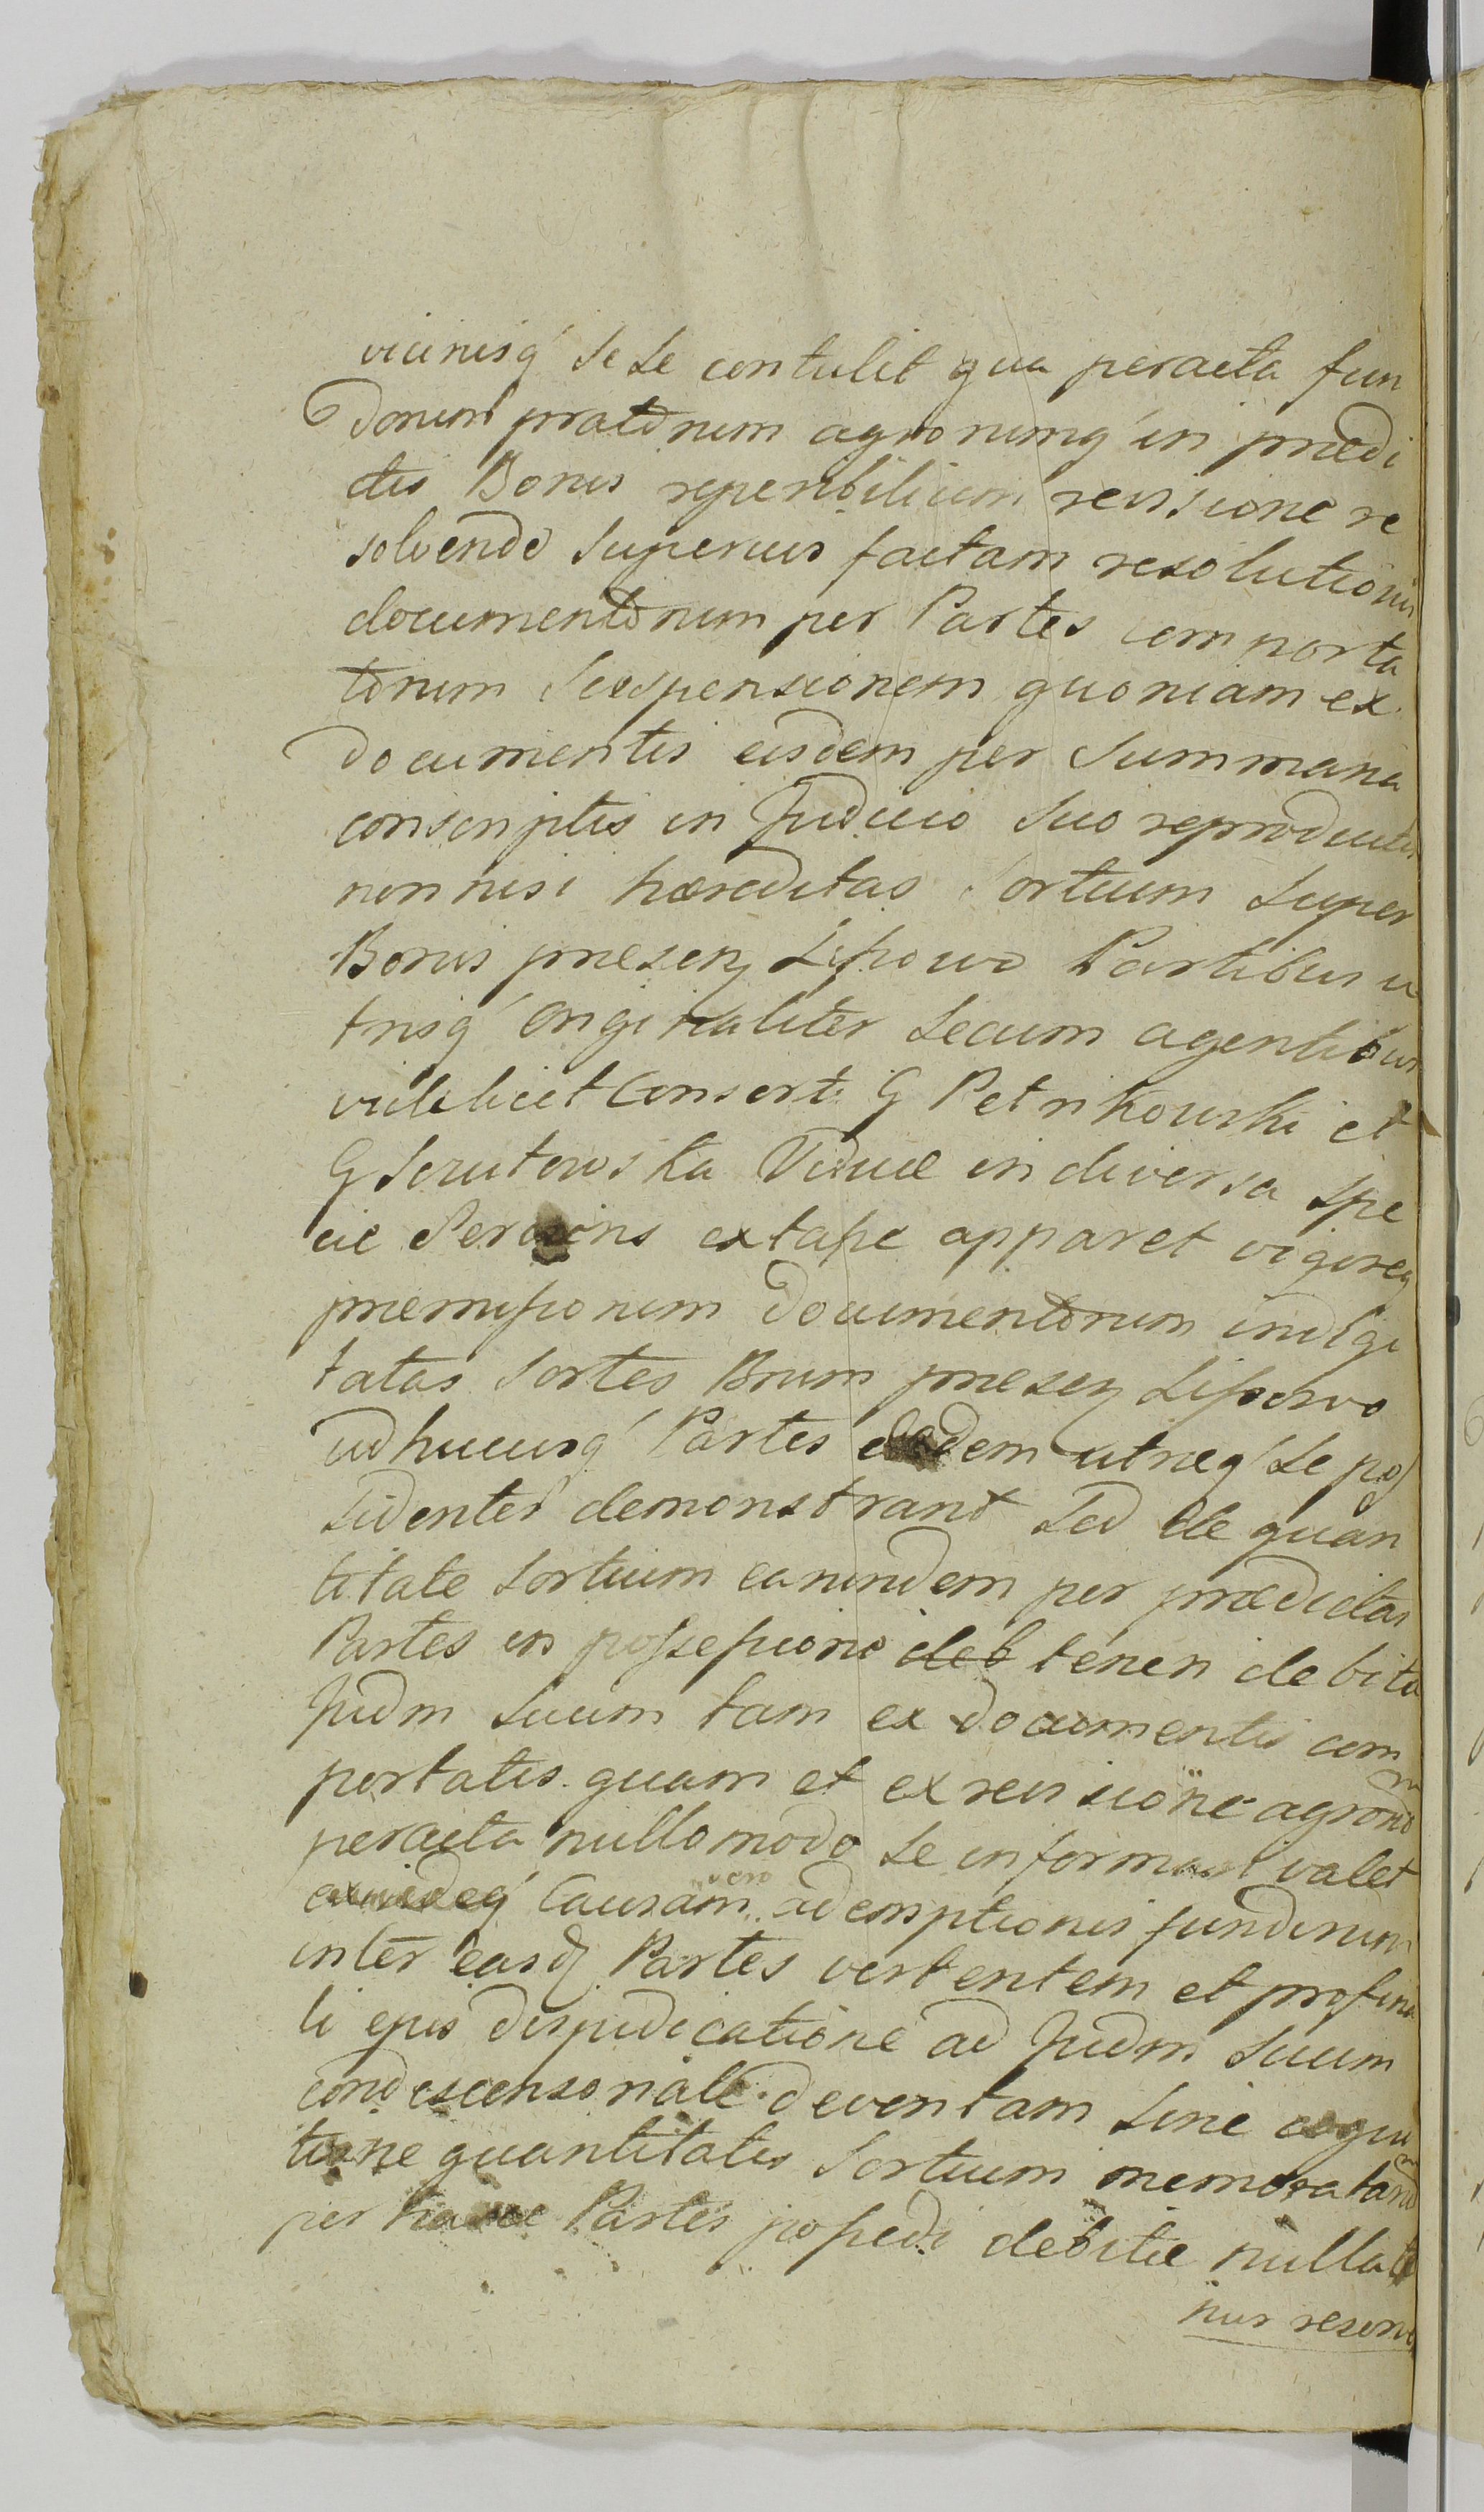 vicinisq' sese contulit qua peracta fun
dorum pratorum agrorumq' in prædi
ctis Bonis reperibilium revisione re
solvendo superius factam resolutionis
documentorum per Partes comporta
torum suspensionem quoniam ex
documentis eisdem per Summaria
conscriptis in Judicio suo reproductis
non nisi hæreditas Sortium super
Bonis præsen Lipowo Partibus u
trisq' originaliter secum agentibus
videlicet Consorti G Petrikowski et
G Scrutowska Viduæ in diversa spe
cie Personis extasse apparet vigoreq
præmissorum documentorum indigi
tatas Sortes Bnum præsen Lipowo
adhucusq' Partes eædem utræq' se pos
sidentes demonstrant sed de quan
titate Sortium earundem per prædictas
Partes in possessione deb teneri debita
Judm suum tam ex documentis com
portatis quam et ex revisione agrorum
peracta nullo modo se informari valet
Causam vero ademptionis fundorum
inter easd Partes vertentem et pro fina
li ejus disjudicatione ad Judm suum
condescensoriale deventam sine cogni
tione quantitatis Sortium memoratarum
per Partes possedi debitæ nullate
nus